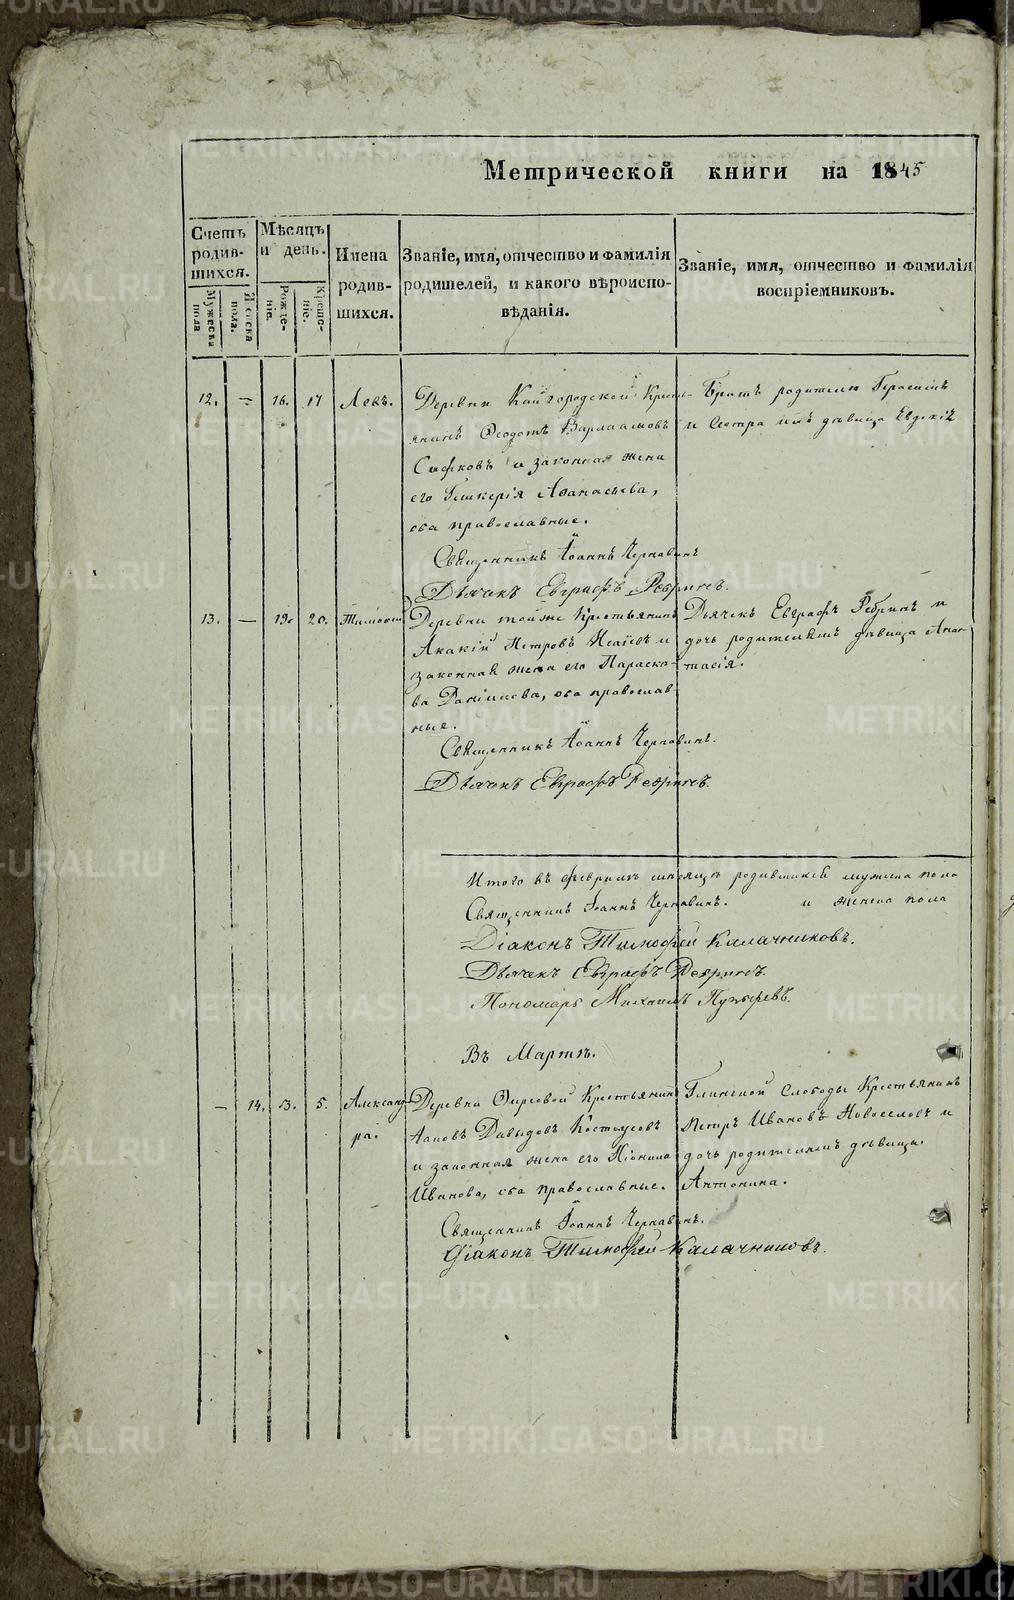 Метрической книги на 1845
Счетъ родив-шихся.
Мужеска пола
Женска пола.
Мѣсяцъ и день.
Рожде-нія.
Креще-нія.
Имена родив-шихся.
Званіе, имя, отчество и фамилія
родителей, и какого вѣроиспо-
вѣданія.
Званіе, имя, отчество и фамилія
воспріемниковъ.
12. — 16. 17 Левъ.
Деревни Кайгородской Кресть-
янинъ Ѳеодотъ Варлаамовъ
и законная жена
его Гликерія Аѳанасьева,
оба православные.
Священникъ Іоаннъ Чернавинъ
Дьячекъ Евграфъ Ребринъ.
Братъ родителю Герасимъ
и Сестра имъ дѣвица Евдокія
13. — 19. 20. Тимоѳей
Деревни тойже Крестьянинъ
Акакій Петровъ Исаевъ и
законная жена его Параске-
ва Данилова, оба православ-
ные.
Священникъ Іоаннъ Чернавинъ.
Дьячекъ Евграфъ Ребринъ.
Дьячекъ Евграфъ Ребринъ и
дочь родителямъ дѣвица Анас-
тасія.
Итого въ Февралѣ мѣсяцѣ родившихся мужеска пола
Священникъ Іоаннъ Чернавинъ. и женска пола
Діаконъ Тимофей Калачниковъ.
Дьячекъ Евграфъ Ребринъ.
Пономарь Михаилъ Пузыревъ.
Въ Мартѣ.
— 14. 3. 5. Александ-
ра.
Деревни Фирсовой Крестьянинъ
Давыдовъ Костоусовъ
и законная жена его Ніонила
Иванова, оба православные.
Священникъ Іоаннъ Чернавинъ.
Діаконъ Тимофей Калачниковъ.
Глинской Слободы Крестьянинъ
Петръ Ивановъ Новоселовъ и
дочь родителямъ дѣвица
Антонина.
METRIKI.GASO-URAL.RU